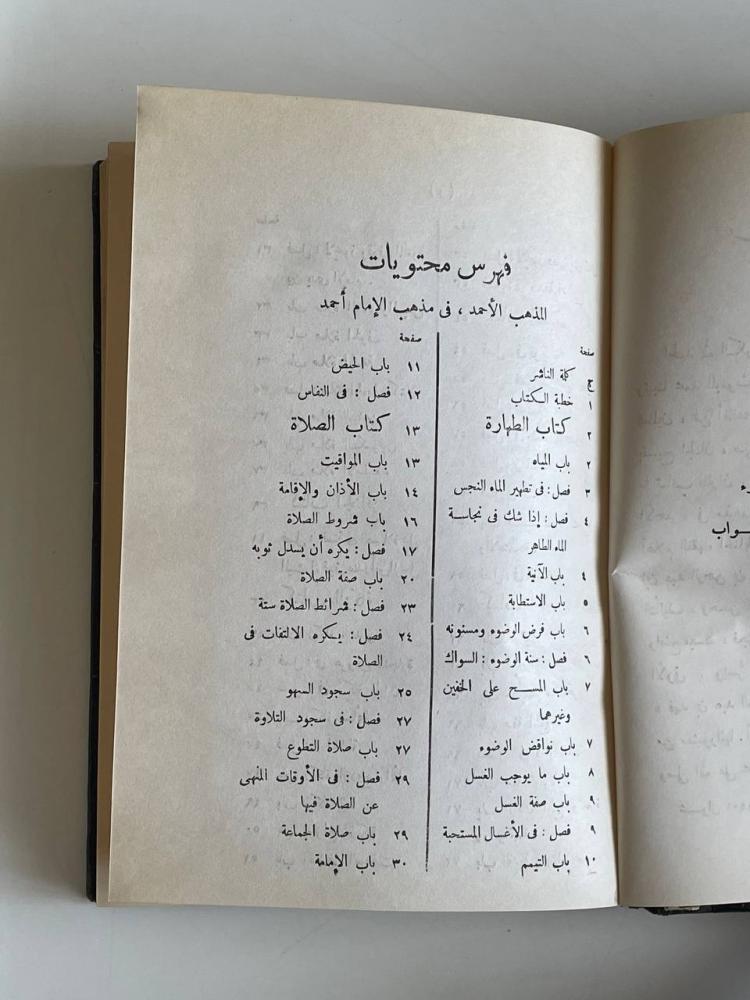 فهرس محتويات
المذهب الأحمد ، فى مذهب الإمام أحمد
صفحة
ج كلمة الناشر
١ خطبة الكتاب
٢ كتاب الطهارة
٢ باب المياه
٣ فصل : فى تطهير الماء النجس
٤ فصل : إذا شك فى نجاسة
الماء الطاهر
٤ باب الآنية
٥ باب الاستطابة
٦ باب فرض الوضوء ومسنونه
٦ فصل : سنة الوضوء : السواك
٧ باب المسح على الخفين
وغيرهما
٧ باب نواقض الوضوء
٨ باب ما يوجب الغسل
٩ باب صفة الغسل
٩ فصل : فى الأغسال المستحبة
١٠ باب التيمم
صفحة
١١ باب الحيض
١٢ فصل : فى النفاس
١٣ كتاب الصلاة
١٣ باب المواقيت
١٤ باب الأذان والإقامة
١٦ باب شروط الصلاة
١٧ فصل : يكره أن يسدل ثوبه
٢٠ باب صفة الصلاة
٢٣ فصل : شرائط الصلاة ستة
٢٤ فصل : يكره الالتفات فى
الصلاة
٢٥ باب سجود السهو
٢٧ فصل : فى سجود التلاوة
٢٧ باب صلاة التطوع
٢٩ فصل : فى الأوقات المنهى
عن الصلاة فيها
٢٩ باب صلاة الجماعة
٣٠ باب الإمامة